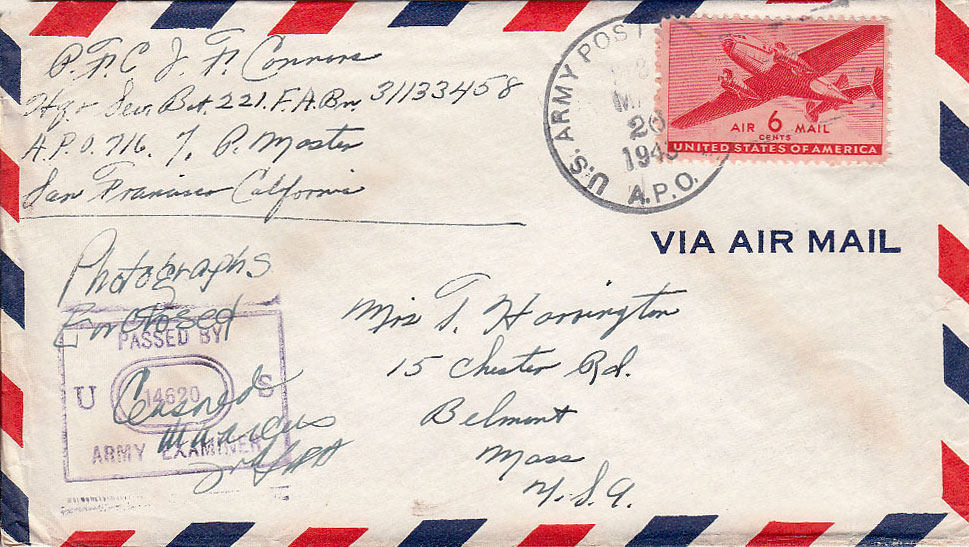 P.F.C J. F. Connors
Hq. Ser. Bat. 221. F.A.Bn. 31133458
A.P.O. 716. % P. Master
San Francisco California
U.S. ARMY POST
MAR
20
194
A.P.O.
AIR 6 MAIL
CENTS
UNITED STATES OF AMERICA
VIA AIR MAIL
Photographs
Enclosed
PASSED BY
U 14620 S
ARMY EXAMINER
Censored
T. Harrington
15 Chester Rd.
Belmont
Mass
U.S.A.